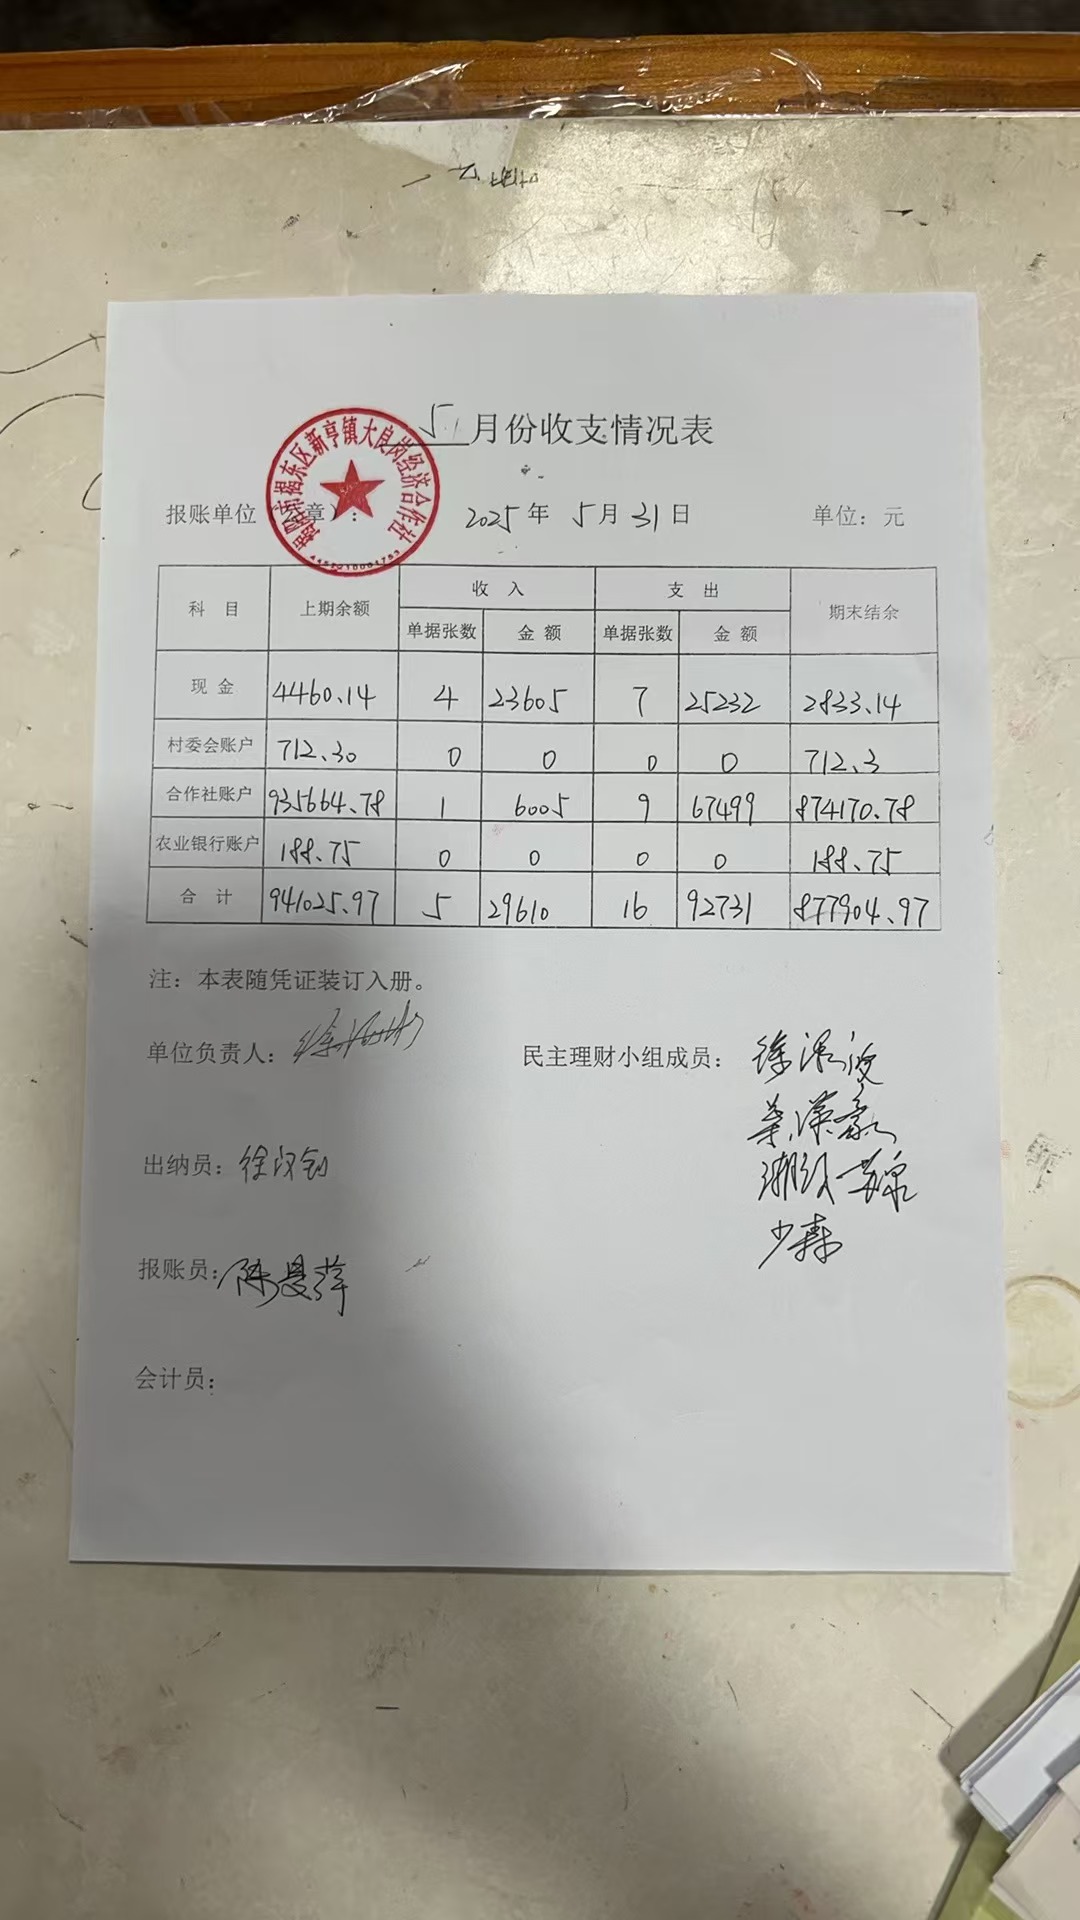 5月份收支情况表
揭阳市揭东区新亨镇大良岗经济合作社
报账单位（公章）： 2025年 5月 31日 单位：元
科 目 上期余额 收 入 支 出 期末结余
单据张数 金 额 单据张数 金 额
现 金 4460.14 4 23605 7 25232 2833.14
村委会账户 712.30 0 0 0 0 712.3
合作社账户 935664.78 1 6005 9 67499 874170.78
农业银行账户 188.75 0 0 0 0 188.75
合 计 941025.97 5 29610 16 92731 877904.97
注：本表随凭证装订入册。
单位负责人： 民主理财小组成员：
出纳员：
报账员：
会计员：